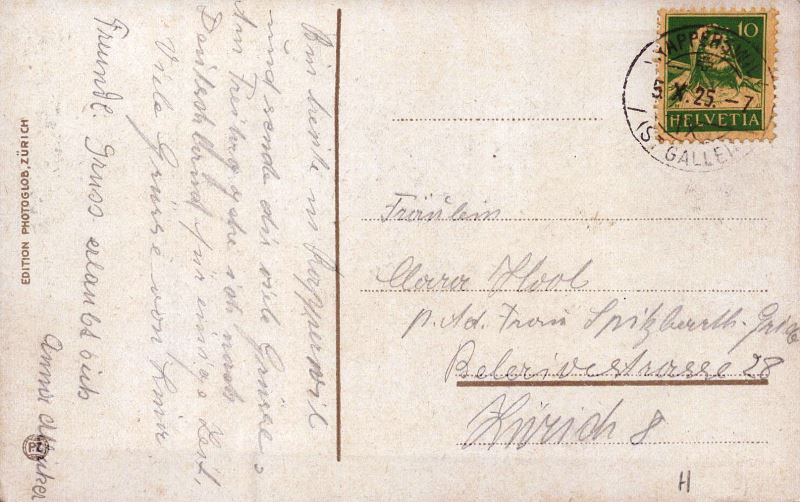 Bin heute in Rapperswil
und sende dir viele Grüsse.
Am Freitag gehe ich nach
Deutschland für einige Zeit,
Viele Grüsse von
Freundl. Gruss erlaubt sich
Anna
EDITION PHOTOGLOB, ZÜRICH
PZ
10
HELVETIA
RAPPERSWIL
5.X.25.-7
(ST. GALLEN)
Fräulein
Clara Hool
p. Ad. Frau Spitzbarth-
Belerivestrasse 28
Zürich 8
H